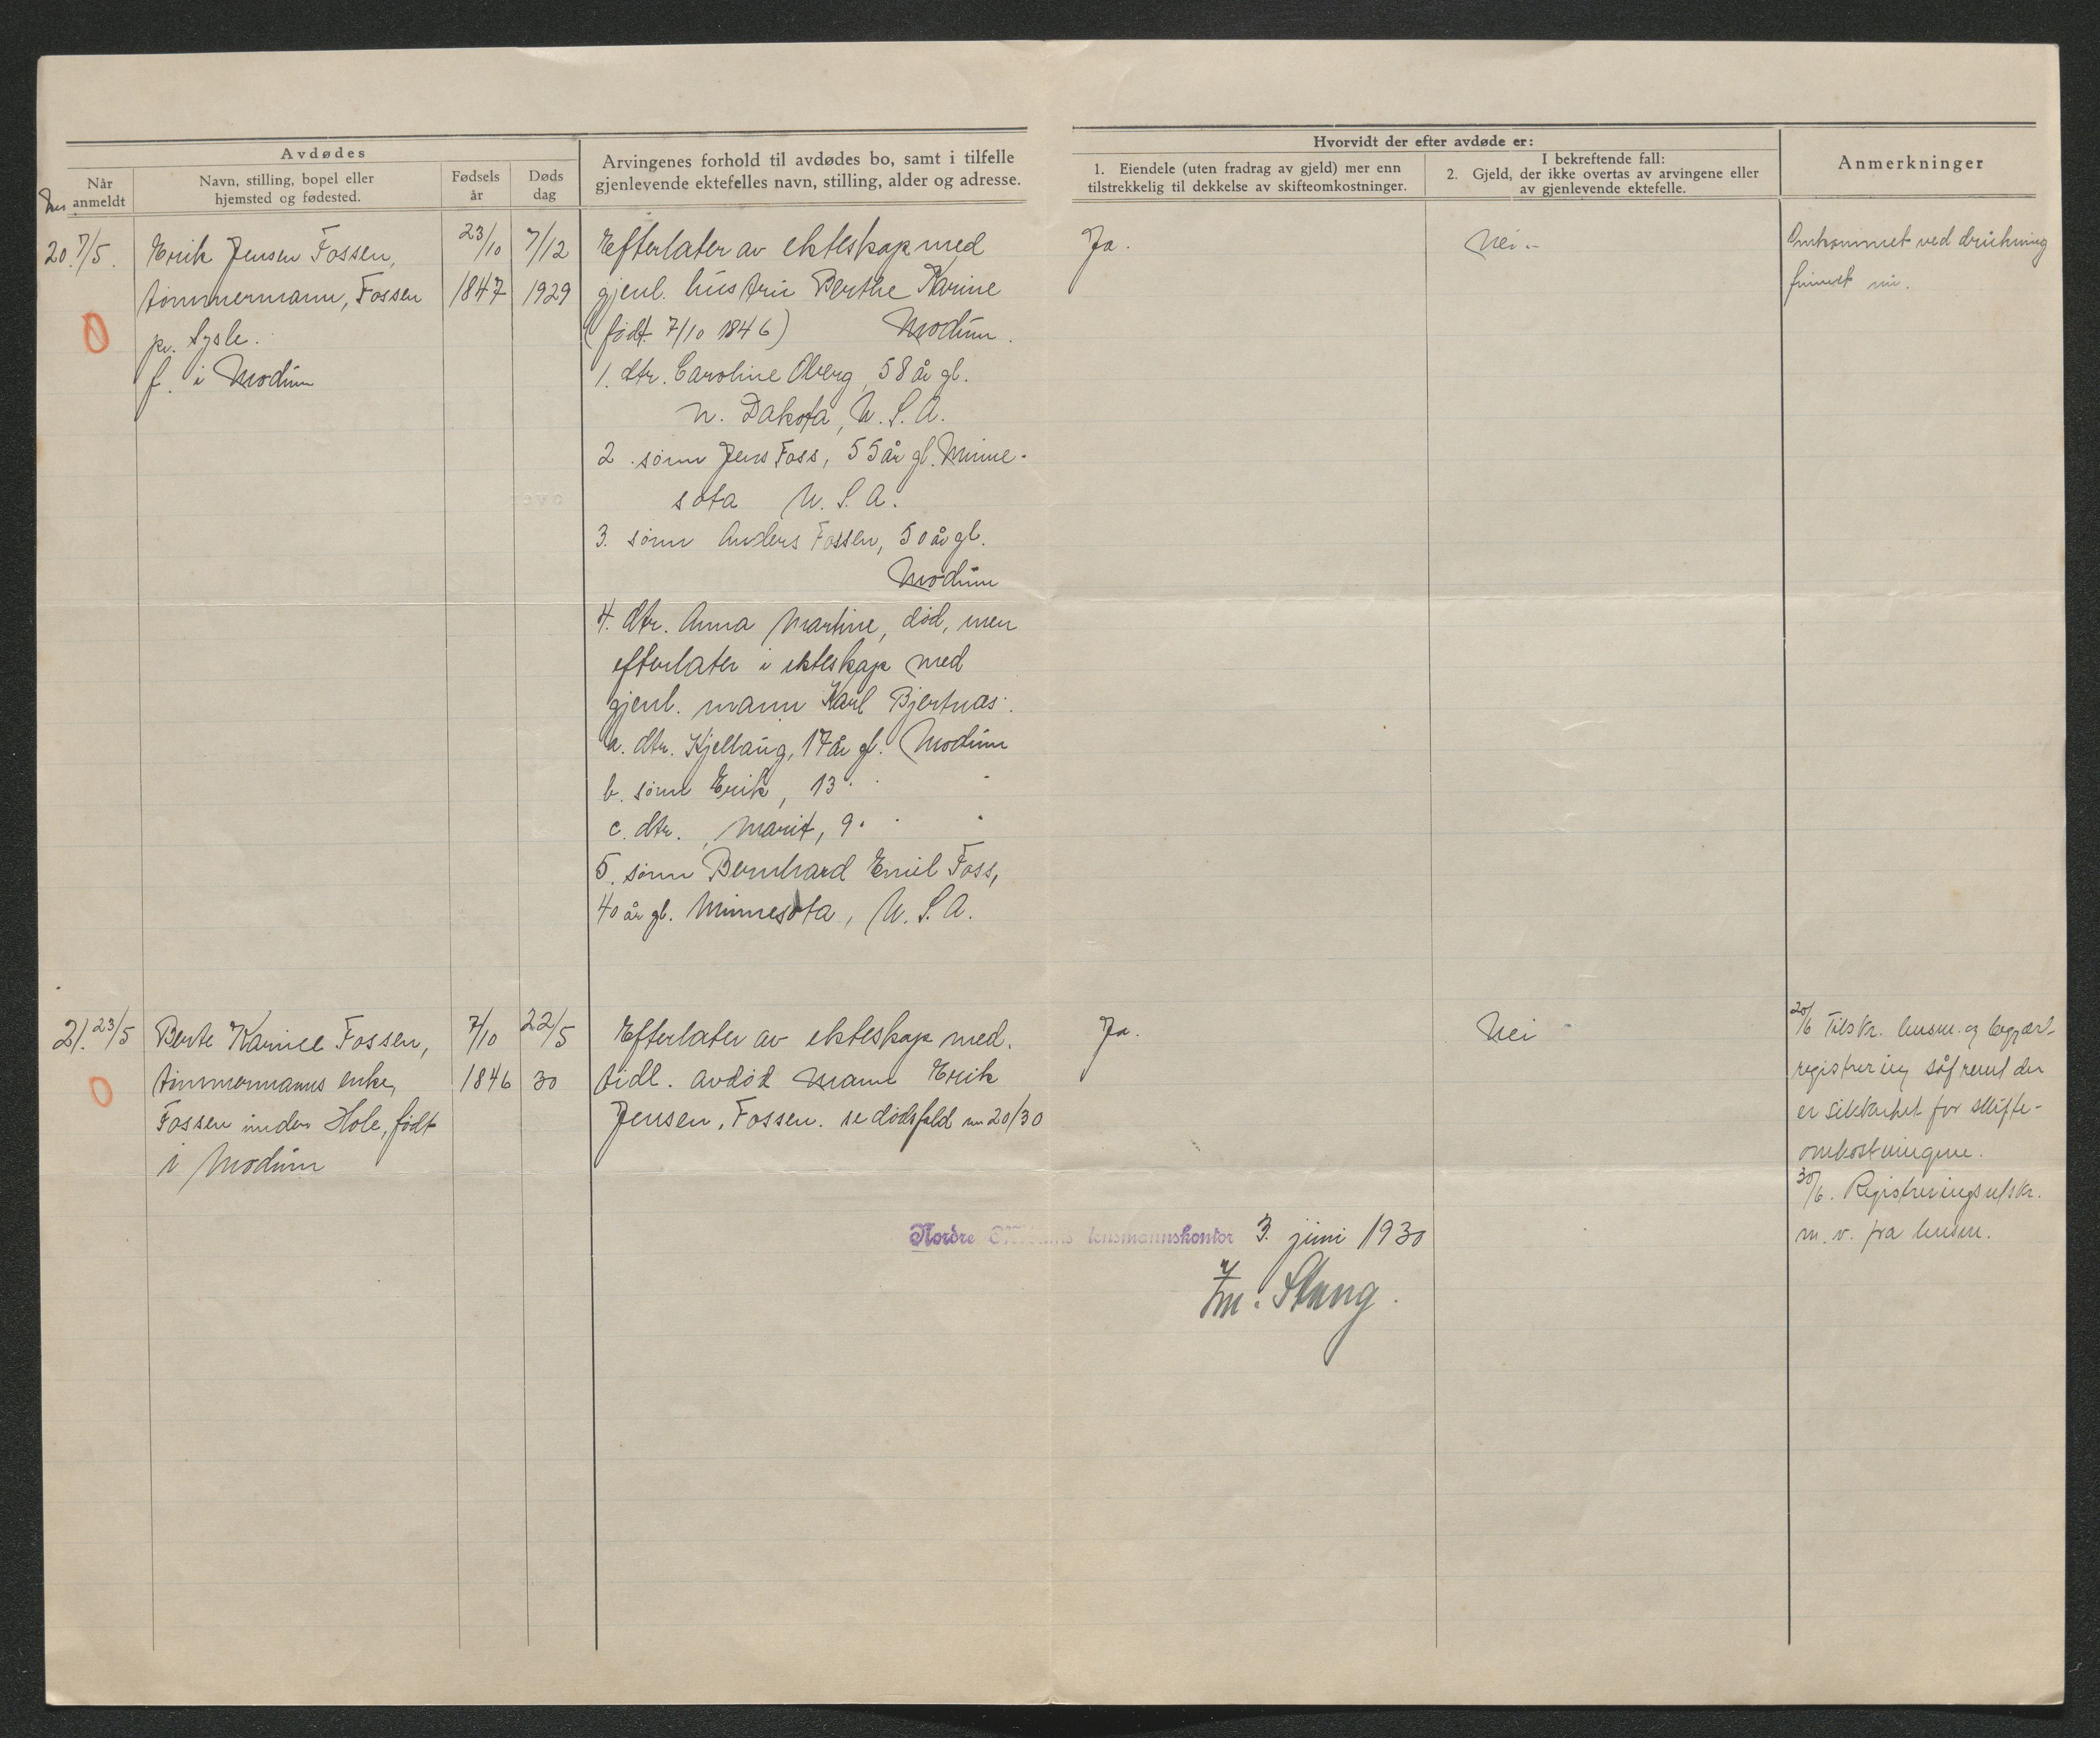 Avdødes
Når anmeldt
Navn, stilling, bopel eller
hjemsted og fødested.
Fødsels
år
Døds
dag
Arvingenes forhold til avdødes bo, samt i tilfelle
gjenlevende ektefelles navn, stilling, alder og adresse.
Hvorvidt der efter avdøde er:
1. Eiendele (uten fradrag av gjeld) mer enn
tilstrekkelig til dekkelse av skifteomkostninger.
I bekreftende fall:
2. Gjeld, der ikke overtas av arvingene eller
av gjenlevende ektefelle.
Anmerkninger
20. 7/5.
Erik Jensen Fossen,
tømmermann, Fossen
pr. Sysle.
f. i Modum
23/10
1847
7/12
1929
Efterlater av ekteskap med
gjenl. hustru Berthe Karine
(født 7/10 1846) Modum.
1. dtr. Caroline Oberg, 58 år gl.
N. Dakota, U.S.A.
2. sønn Jens Foss, 55 år gl. Minne-
sota U.S.A.
3. sønn Anders Fossen, 50 år gl.
Modum
4. dtr. Anna Martine, død, men
efterlater i ekteskap med
gjenl. mann Karl Bjertnæs.
a. dtr. Kjellaug, 17 år gl. Modum
b. sønn Erik, 13 " "
c. dtr. Marit, 9 " "
5. sønn Bernhard Emil Foss,
40 år gl. Minnesota, U.S.A.
Ja.
Nei.
Omkommet ved drukning
funnet nu.
0
21. 23/5
Berte Karine Fossen,
tømmermanns enke,
Fossen under Hole, født
i Modum
7/10
1846
22/5
30
Efterlater av ekteskap med
tidl. avdød mann Erik
Jensen Fossen. se dødsfald nr 20/30
Ja.
Nei
20/6 Tilskr. lensm. og begjært
registrering såfremt der
er sikkerhet for skifte-
omkostningene.
30/6. Registreringsutskr.
m. v. fra lensm.
0
Nordre Modums lensmannskontor 3. juni 1930
Stang.